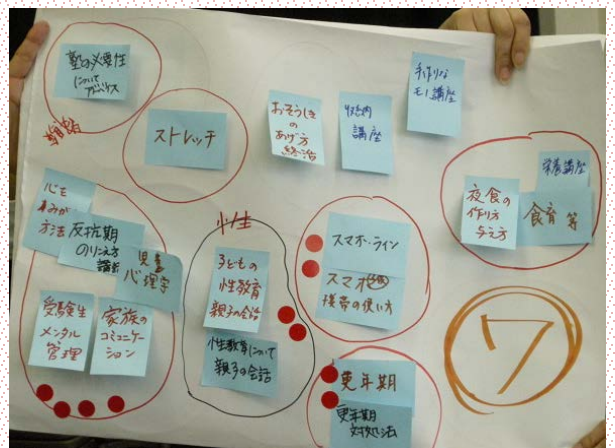 塾の必要性
について
アドバイス
ストレッチ
おそうしき
の
あげ方
終活
収納
講座
手作りな
モノ講座
栄養講座
夜食の
作り方
与え方
食育 等
心を
方法
反抗期
のりこえ方
講座
児童
心理学
受験生
メンタル
管理
家族の
コミュニケー
ション
性
子どもの
性教育
親子の会話
性教育について
親子の会話
スマホ・ライン
スマホ
携帯の使い方
更年期
更年期
対処法
7